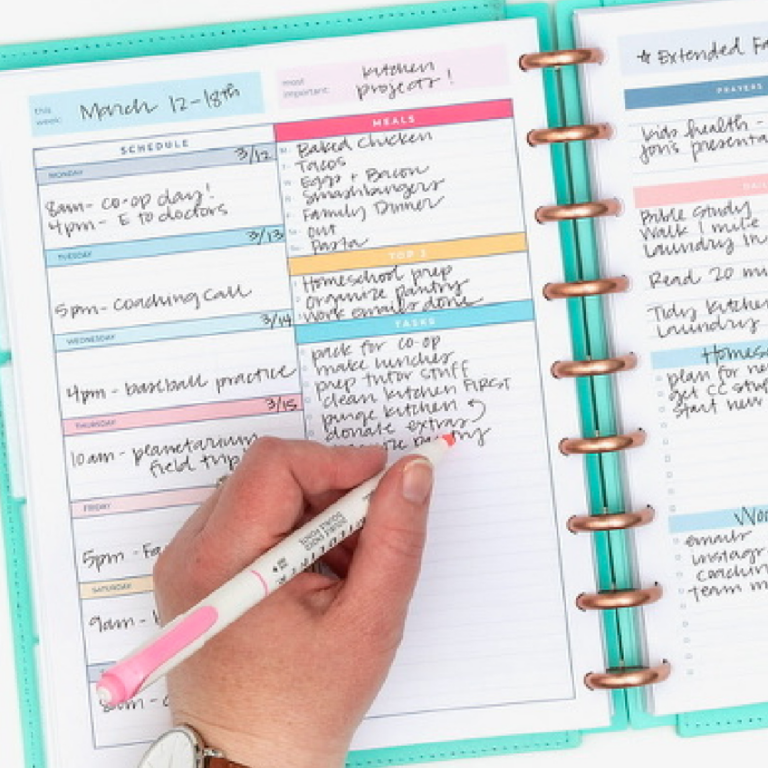 this week:
March 12-18th
most important:
kitchen projects!
SCHEDULE
MONDAY 3/12
8am- co-op day!
4pm- E to doctors
TUESDAY 3/13
5pm- coaching call
WEDNESDAY 3/14
4pm- baseball practice
THURSDAY 3/15
10am- planetarium
field trip
FRIDAY
5pm - Fa
SATURDAY
9am-
MEALS
Baked chicken
Tacos
Eggs + Bacon
Smashburgers
Family Dinner
out
Pasta
TOP 3
Homeschool prep
organize pantry
work emails done
TASKS
pack for co-op
make lunches
prep tutor stuff
clean kitchen FIRST
purge kitchen
donate extras
★ Extended Fa
PRAYERS
kids health -
Jon's presenta
DAIL
Bible Study
Walk 1 mile
Laundry in
Read 20 mi
Tidy kitchen
Laundry
Homes
plan for ne
get CC stuf
start new
Wo
emails
instagr
coachin
team m